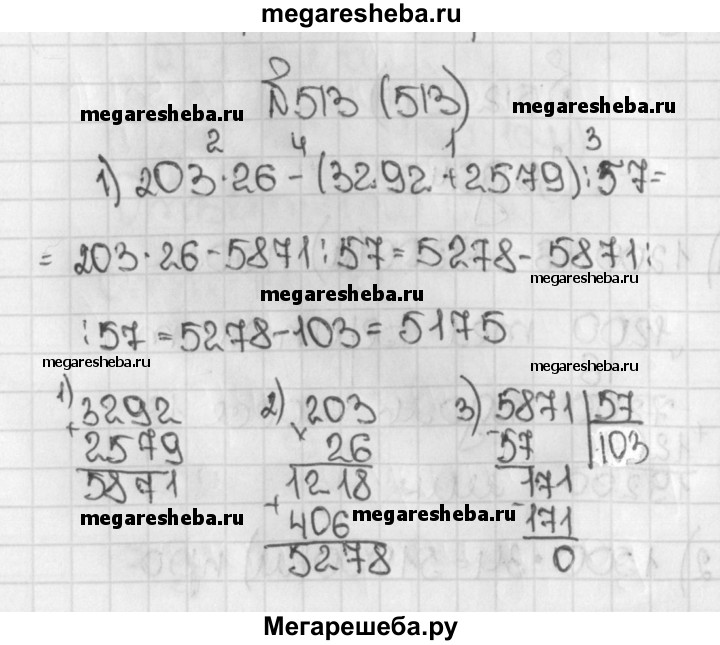 megaresheba.ru
№513 (513)
megaresheba.ru
megaresheba.ru
2 4 1 3
1) 203·26-(3292+2579):57=
= 203·26-5871:57=5278-5871:
megaresheba.ru
megaresheba.ru
:57=5278-103=5175
megaresheba.ru
megaresheba.ru
1) 3292
+ 2579
5871
2) 203
× 26
1218
+ 406
5278
3) 5871 57
- 57 103
171
- 171
0
megaresheba.ru
megaresheba.ru
Мегарешеба.ру